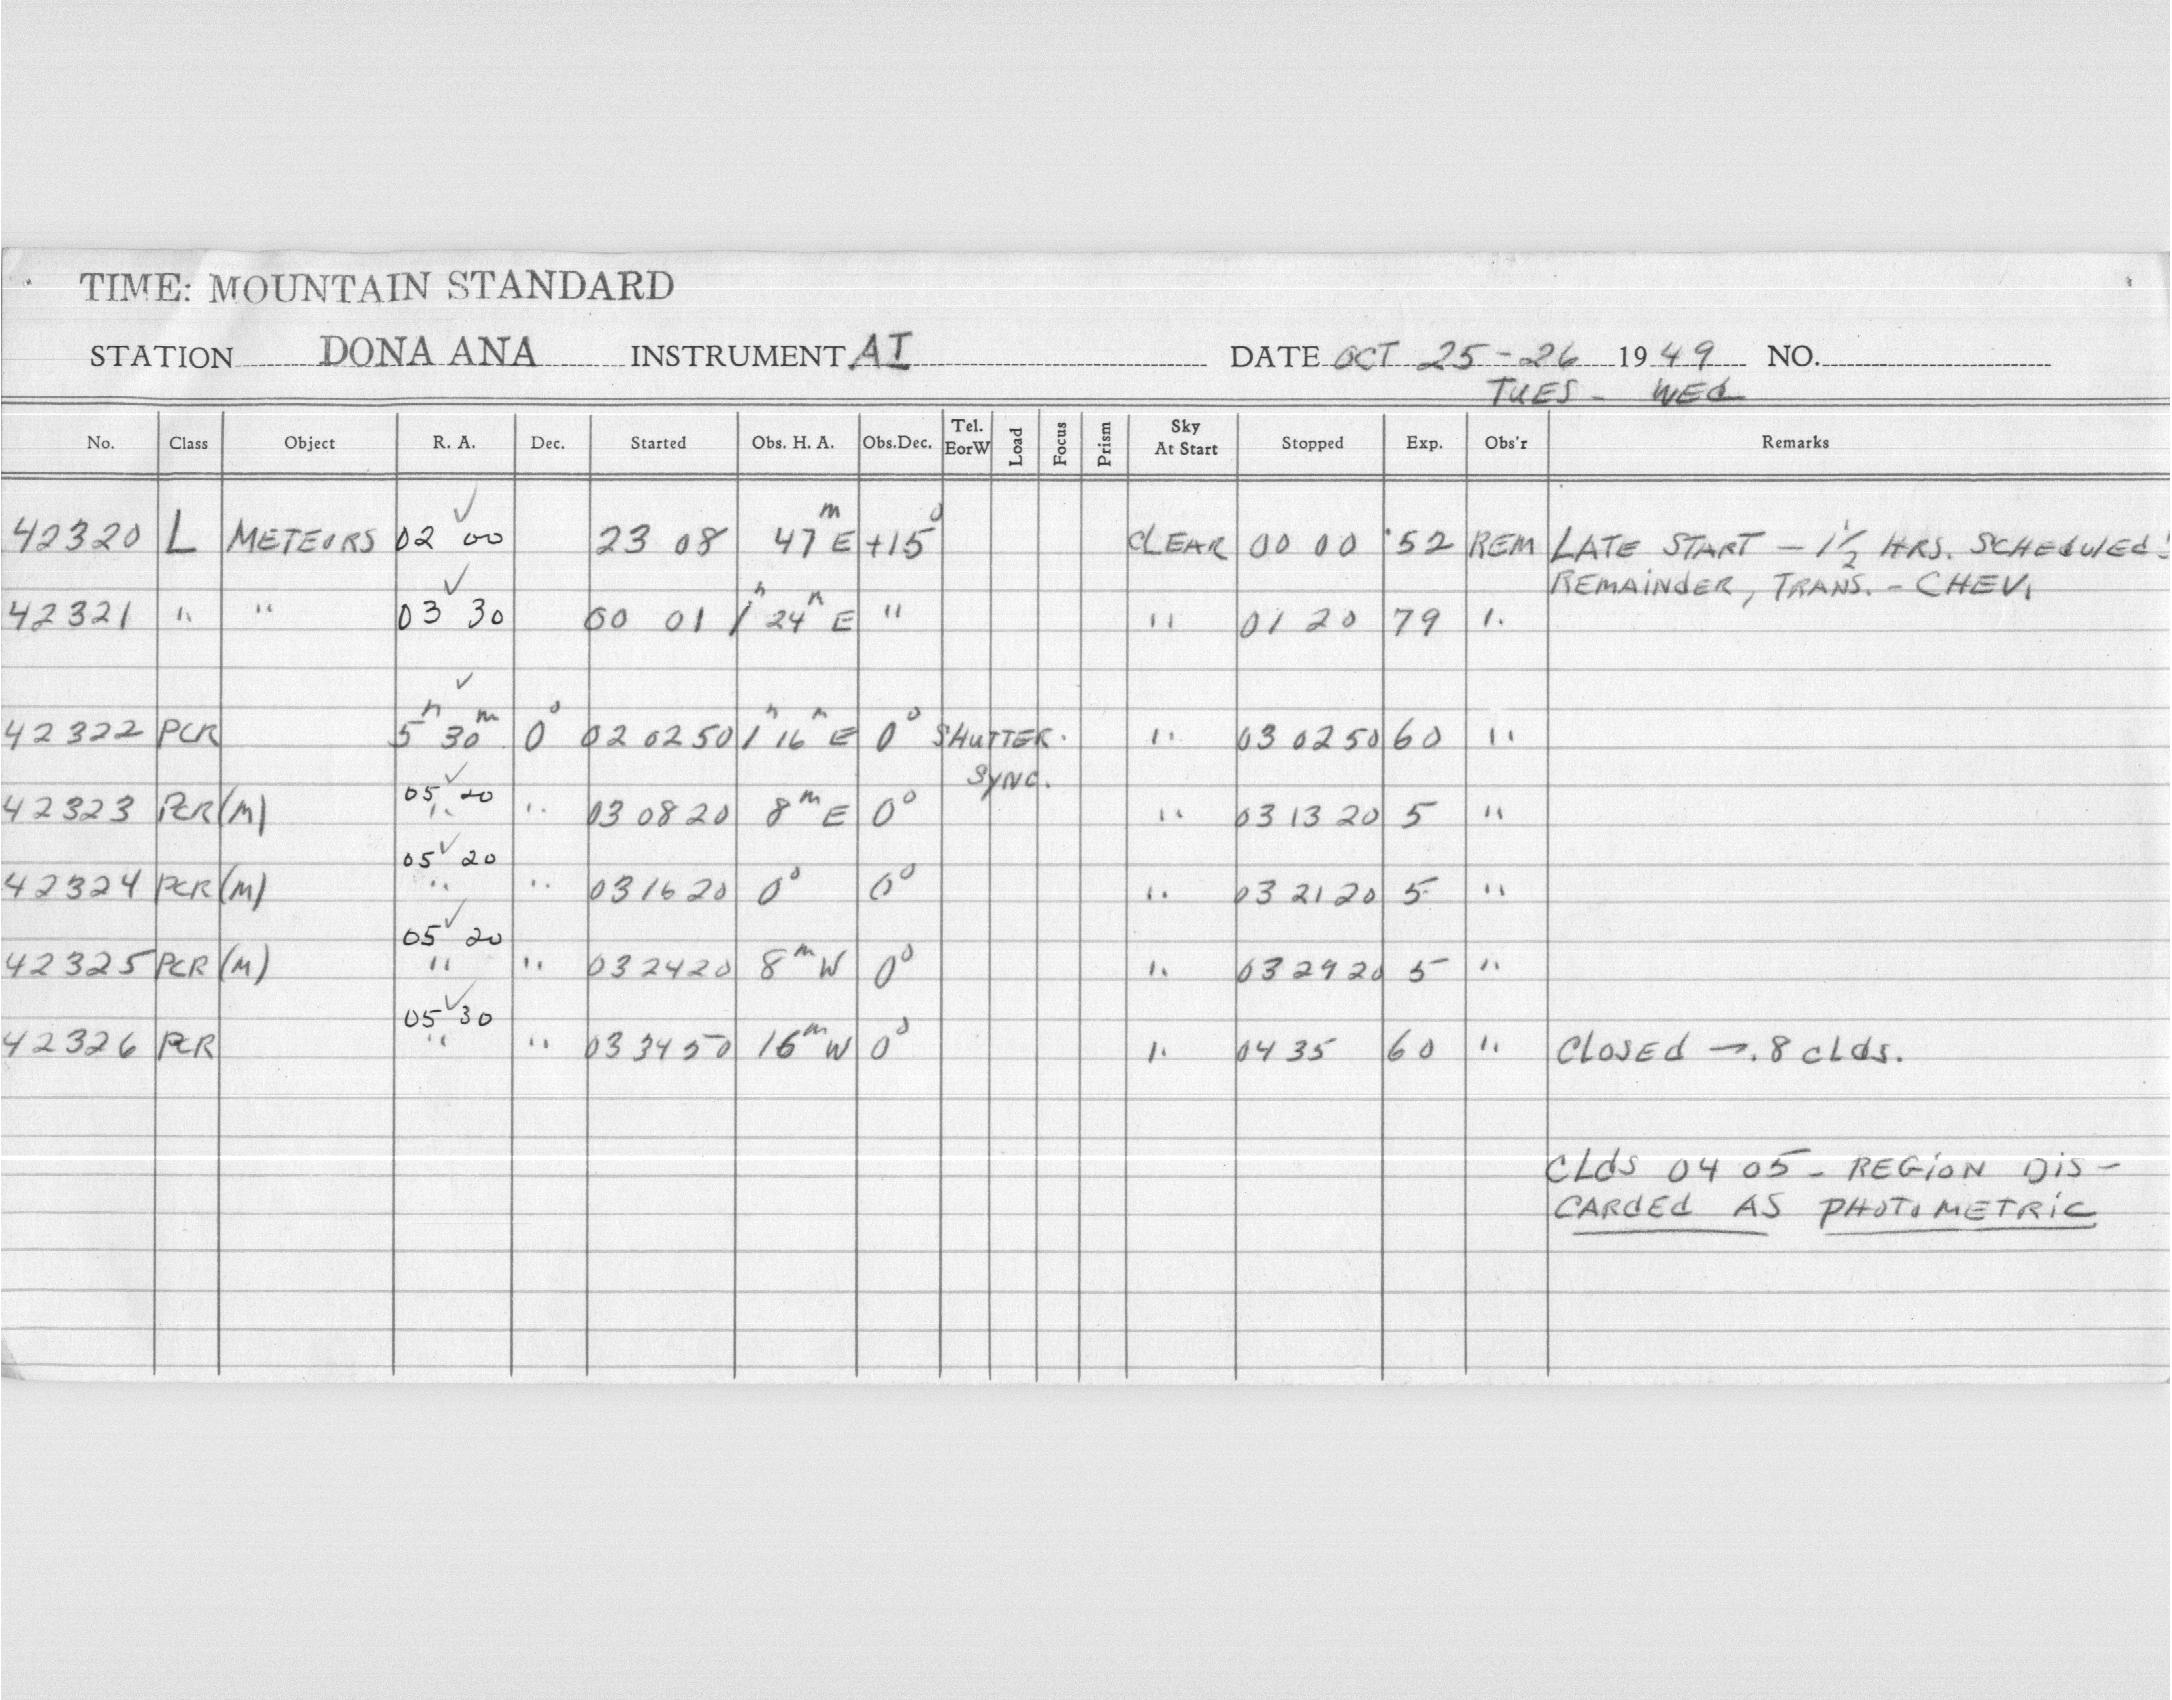 TIME: MOUNTAIN STANDARD
STATION DONA ANA INSTRUMENT AI DATE OCT 25-26 1949 NO.
TUES - WEd
No. Class Object R. A. Dec. Started Obs. H. A. Obs.Dec. Tel. EorW Load Focus Prism Sky At Start Stopped Exp. Obs'r Remarks
42320 L METEORS 02 00 23 08 47m E +15° CLEAR 00 00 52 REM LATE START - 1 1/2 HRS. SCHEdULEd!
REMAINdER, TRANS. - CHEV.
42321 " " 03 30 00 01 1h 24m E " " 01 20 79 "
42322 PCR 5h 30m 0° 02 02 50 1h 16m E 0° SHUTTER " 03 02 50 60 "
SYNC.
05 20
42323 PCR (M) " " 03 08 20 8m E 0° " 03 13 20 5 "
05 20
42324 PCR (M) " " 03 16 20 0° 0° " 03 21 20 5 "
05 20
42325 PCR (M) " " 03 24 20 8m W 0° " 03 29 20 5 "
05 30
42326 PCR " " 03 34 50 16m W 0° " 04 35 60 " CLOSEd - .8 cLds.
CLdS 04 05 - REGiON DiS-
CARdEd AS PHOTOMETRiC